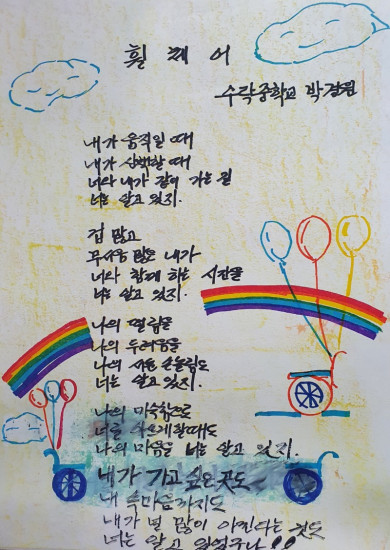 휠 체 어
수락중학교 박경원
내가 움직일 때
내가 산책할 때
너와 내가 같이 가는 길
너는 알고 있지.
겁 많고
무서움 많은 내가
너와 함께 하는 시간을
너는 알고 있지.
나의 떨림을
나의 두려움을
나의 작은 손놀림도
너는 알고 있지.
나의 미숙함으로
너를 아프게 할때도
나의 마음을 너는 알고 있지.
내가 가고 싶은 곳도
내 속마음까지도
내가 널 많이 아낀다는 것도
너는 알고 있었구나!!